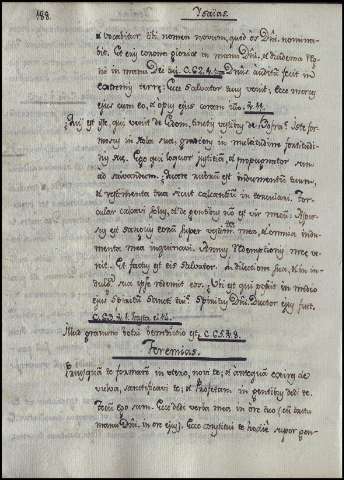 188.
Isaias.
& vocabitur tibi nomen novum, quod os Dñi. nomina-
bit. Et eris corona gloriæ in manu Dñi. & diadema
in manu Dei tui. C. 62. Dñus auditum fecit in
terræ: Ecce Salvator tuus venit: Ecce merces
ejus cum eo, & opus ejus coram illo. 11.
Quis est iste, qui venit de Edom, tinctis vestibus de Bosra? iste for-
mosus in stola sua, gradiens in multitudine fortitudi-
nis suæ. Ego qui loquor justitiam, & propugnator sum
ad salvandum: quare rubrum est indumentum tuum,
& vestimenta tua sicut calcantium in torculari. Tor-
cular calcavi solus, & de gentibus non est vir mecum:
est sanguis eorum super vestim.ta mea, & omnia indu-
menta mea inquinavi. Annus Redemptionis meæ ve-
nit. Et factus est eis Salvator. in dilectione sua, & in in-
dulg.a sua ipse redemit eos. Ubi est qui posuit in medio
ejus Spiritum Sancti sui. Spiritus Dñi. Ductor ejus fuit.
C. 63.
granum botri benedictio est. C. 65. 8.
Jeremias.
Priusquã te formarem in utero, novi te; & antequã exires de
vulva, sanctificavi te; & Prophetam in gentibus dedi te.
ego sum. Ecce dedi verba mea in ore tuo (cũ
manu Dñi. in ore ejus). Ecce constitui te hodie super gen-